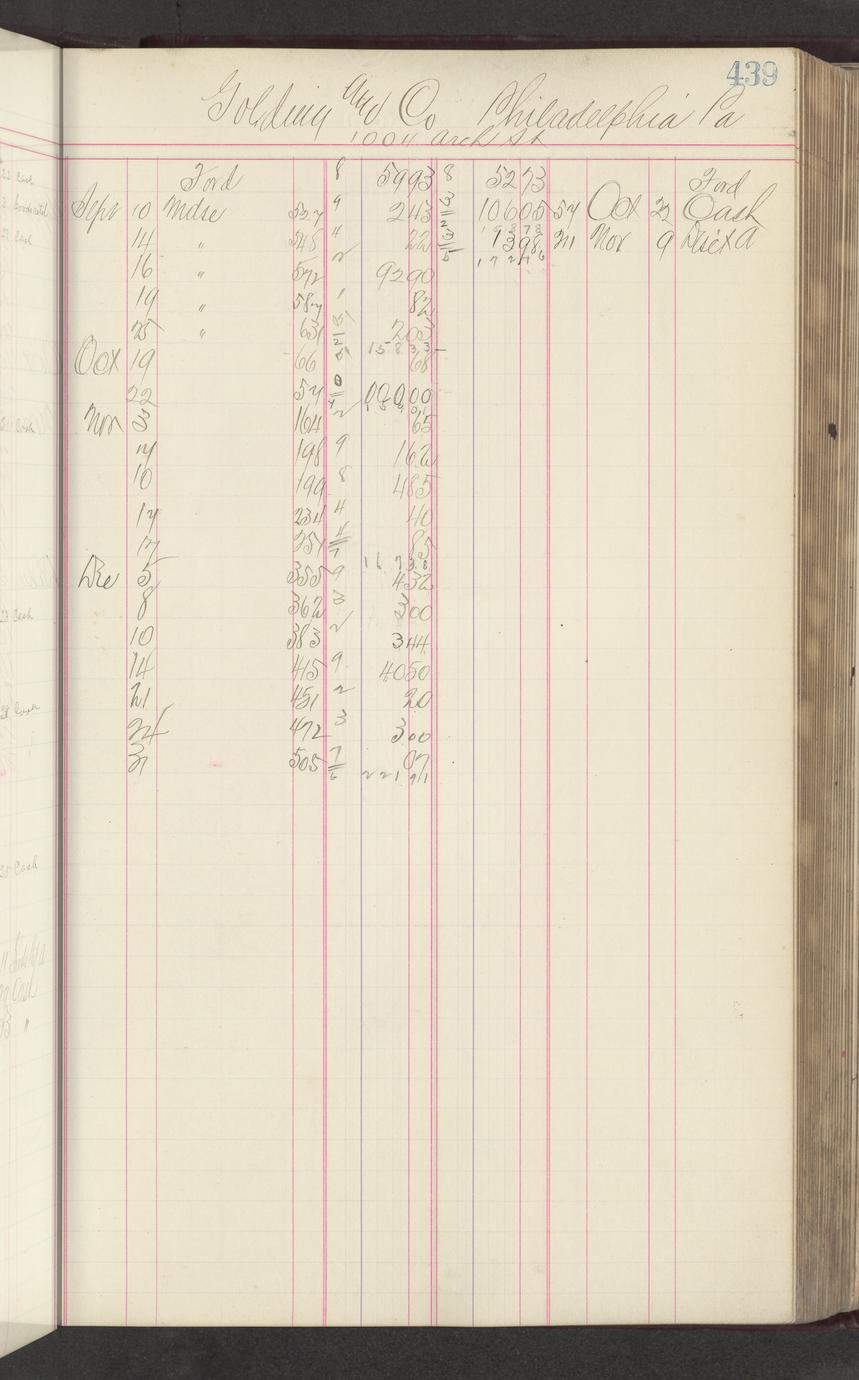 439
Golding and Co Philadelphia Pa
1004 Arch St
Ford 8 5993 8 5273 Ford
Sept 10 Mdse 527 9 243 3 10605 57 Oct 22 Cash
14 " 548 4 22 3 1398 Nov 9
16 " 572 2 9290
19 " 587 1 82
25 " 631 203
15833
Oct 19 66 5 68
22 57 0 00000
Nov 3 164 2 65
7 198 9 162
10 199 8 485
14 234 4 40
17 257 4 85
16738
Dec 5 355 9 432
8 362 3 300
10 383 2 344
14 415 9 4050
21 451 2 20
24 472 3 300
31 505 7 07
6 22171